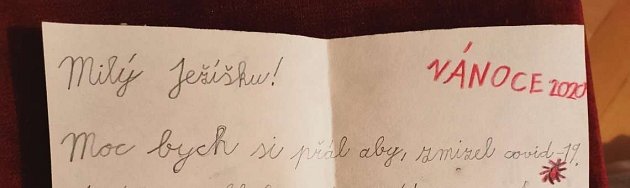 Milý Ježíšku!
VÁNOCE 2020
Moc bych si přál aby, zmizel covid-19.